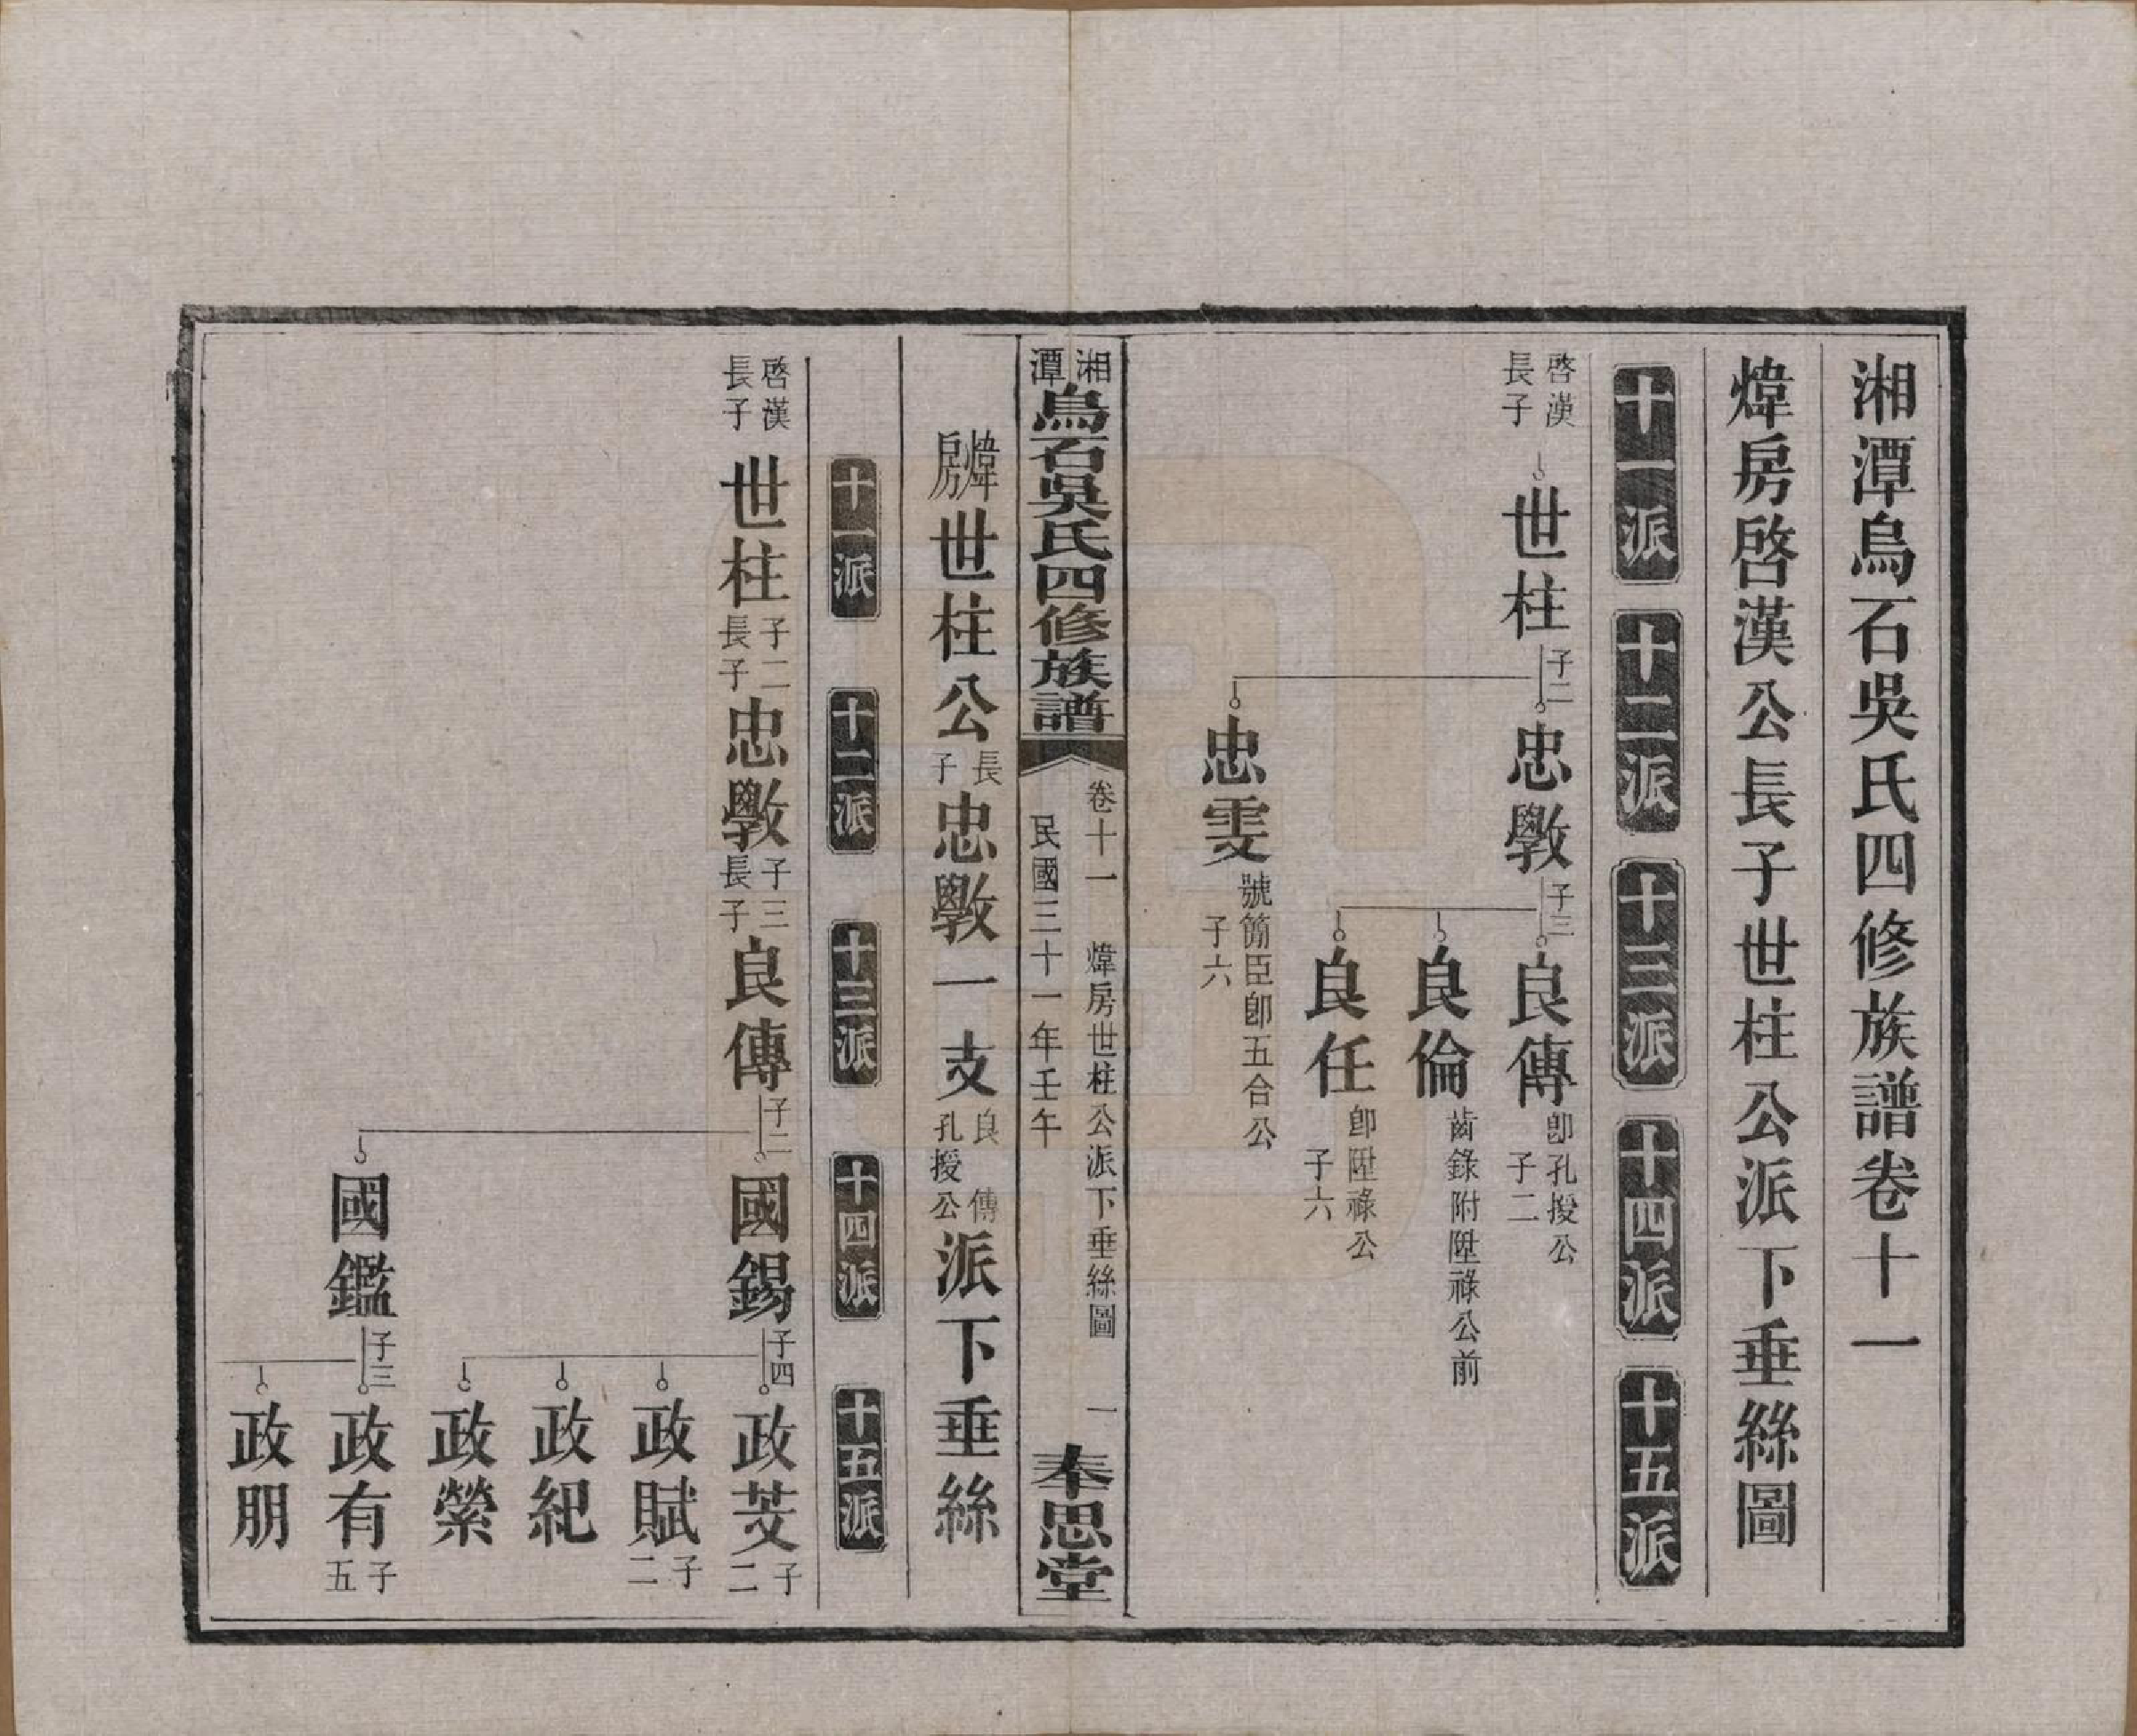 湘潭烏石吳氏四修族譜卷十一
煒房啓漢公長子世柱公派下垂絲圖
十一派 十二派 十三派 十四派 十五派
啓漢長子 世柱 子二 忠斆 子三 良傳 卽孔授公 子二
良倫 齒錄附陞祿公前
良任 卽陞祿公 子六
忠雯 號簡臣卽五合公 子六
湘潭烏石吳氏四修族譜 卷十一 煒房世柱公派下垂絲圖 一
民國三十一年壬午 奉思堂
煒房世柱公長子忠斆一支良傳孔授公派下垂絲
十一派 十二派 十三派 十四派 十五派
啓漢長子 世柱 子二長子 忠斆 子三長子 良傳 子二 國錫 子四 政芠 子二
政賦 子二
政紀
政縈
國鑑 子三 政有 子五
政朋